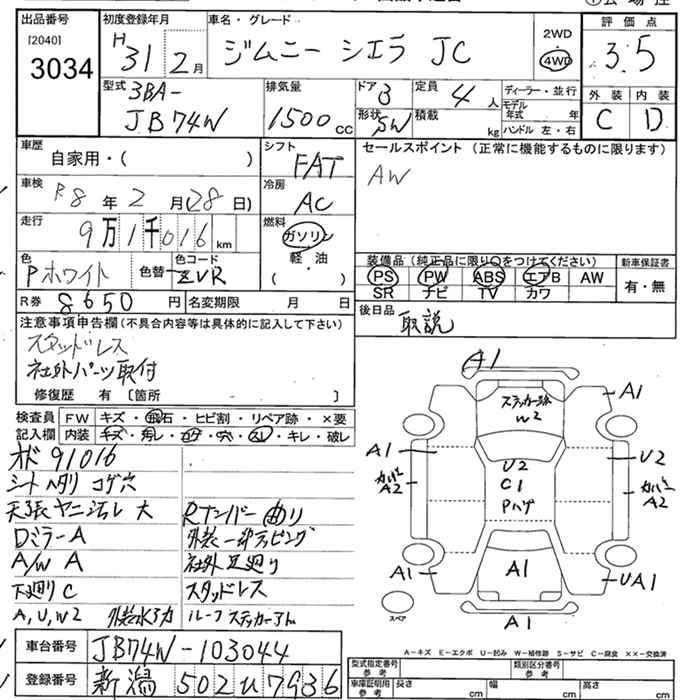 出品番号
[2040]
3034
初度登録年月
H31 2月
車名・グレード
ジムニー シエラ JC
2WD
4WD
評価点
3.5
外装 内装
C D
型式 3BA-
JB74W
排気量
1500 cc
ドア 3
形状 SW
定員 4 人
積載 kg
ディーラー・並行
モデル年式 年
ハンドル 左・右
車歴
自家用・( )
シフト
FAT
セールスポイント(正常に機能するものに限ります)
AW
車検 R8年2月(28日)
冷房
AC
走行 9万1千016km
燃料
ガソリン
軽・油
( )
色 Pホワイト
色替
色コード
ZVR
装備品(純正品に限り○をつけてください)
PS PW ABS エアB AW
SR ナビ TV カワ
新車保証書
有・無
R券 8650円 名変期限 月 日
後日品
取説
注意事項申告欄(不具合内容等は具体的に記入して下さい)
スタッドレス
社外パーツ取付
修復歴 有 [箇所 ]
検査員 FW キズ・飛石・ヒビ割・リペア跡・×要
記入欄 内装 キズ・汚レ・コゲ・穴・スレ・キレ・破レ
メーター 91016
シート ヘタリ コゲ穴
天張ヤニ汚レ 大
Rナンバー曲リ
Dミラー A
外装一部ラッピング
A/W A
社外足廻り
下廻りC
スタッドレス
A,U,W2
ルーフ ステッカー
A1
ステッカー跡
W2
A1
A1
U2
U2
C1
Pハゲ
カバー
A2
カバー
A2
A1
A1
UA1
A1
スペア
A-キズ E-エクボ U-凹み W-補修跡 S-サビ C-腐食 ××-交換済
車台番号 JB74W-103044
登録番号 新潟 502 ひ 7936
型式指定番号
参考
類別区分番号
参考
車庫証明用
参考
長さ cm
幅 cm
高さ cm